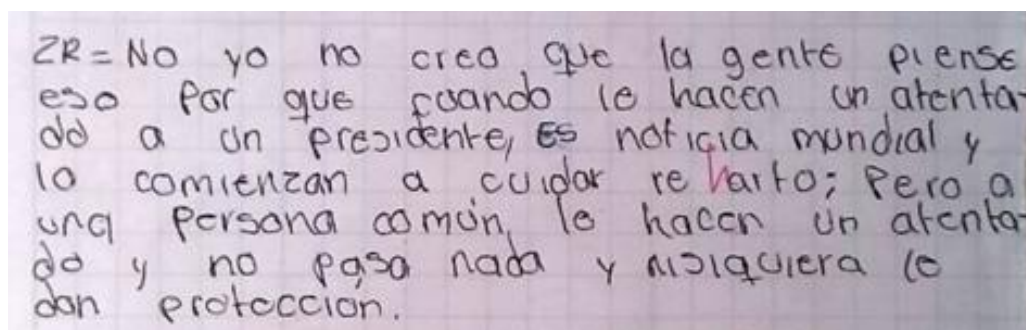 2R = No yo no creo que la gente piense
eso por que cuando le hacen un atenta-
do a un presidente, es noticia mundial y
lo comienzan a cuidar re harto; pero a
una persona común, le hacen un atenta-
do y no pasa nada y nisiquiera le
dan protección.